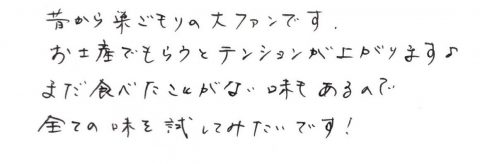 昔から巣ごもりの大ファンです.
お土産でもらうとテンションが上がります♪
まだ食べたことがない味もあるので
全ての味を試してみたいです!